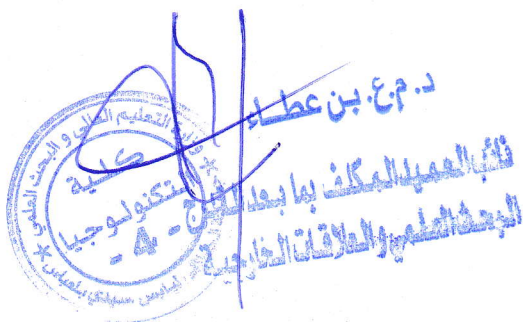 د. م.ع. بن عطاء
نائب العميد المكلف بما بعد التدرج
البحث العلمي والعلاقات الخارجية
وزارة التعليم العالي و البحث العلمي
كلية
التكنولوجيا
- 4 -
سيدي بلعباس